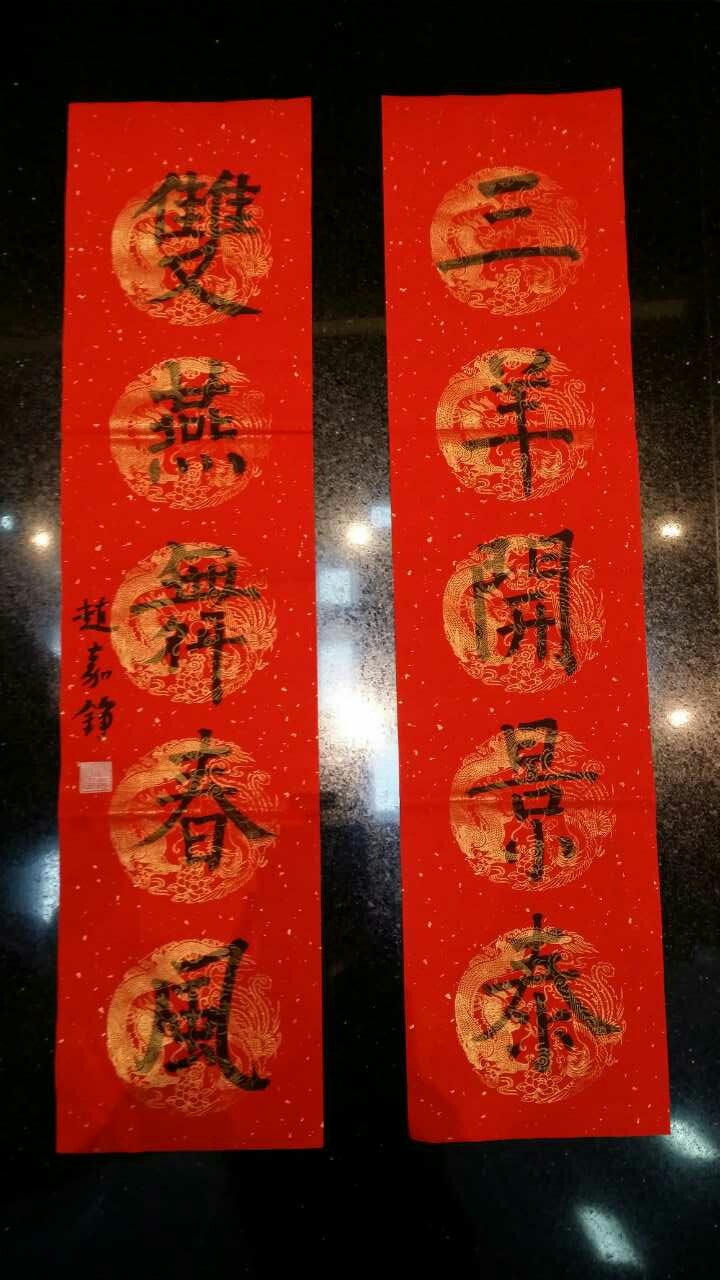 三羊開景泰
雙燕舞春風
趙嘉